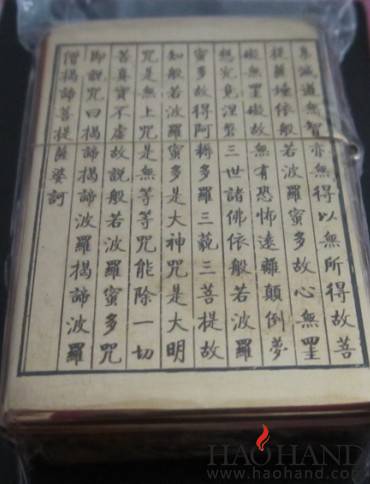 集滅道無智亦無得以無所得故菩
提薩埵依般若波羅蜜多故心無罣
礙無罣礙故無有恐怖遠離顛倒夢
想究竟涅槃三世諸佛依般若波羅
蜜多故得阿耨多羅三藐三菩提故
知般若波羅蜜多是大神咒是大明
咒是無上咒是無等等咒能除一切
苦真實不虛故說般若波羅蜜多咒
即說咒曰揭諦揭諦波羅揭諦波羅
僧揭諦菩提薩婆訶
HAOHAND
www.haohand.com